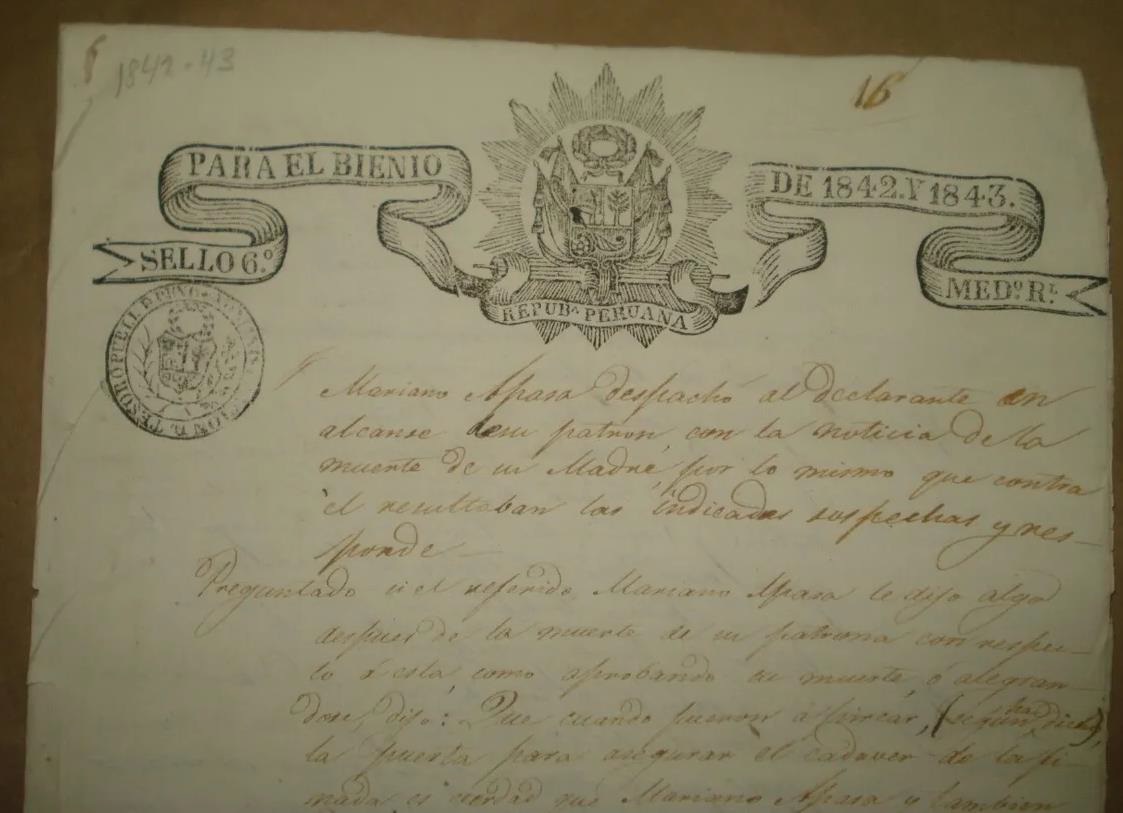 1842-43
16
PARA EL BIENIO
DE 1842.Y 1843.
SELLO 6.º
MEDº. Rl.
REPUBª. PERUANA
Mariano Apasa despachó al declarante en
alcanse desu patron, con la noticia de la
muerte de su Madre, por lo mismo que contra
el resultaban las indicadas sospechas y res-
ponde
Preguntado si el referido Mariano Apasa le dijo algo
despues de la muerte de su patrona con respec-
to á esta, como aprobando su muerte, ó alegran-
dose, dijo: Que cuando fueron á pircar, (segun ha dicho),
la puerta para asegurar el cadaver de la fi-
nada es verdad que Mariano Apasa y tambien